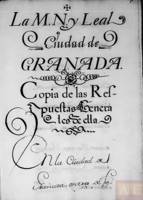 La M. N. y Leal
Ciudad de
GRANADA.
Copia de las Res-
puestas Genera
les de ella
En la Ciudad de
Granada